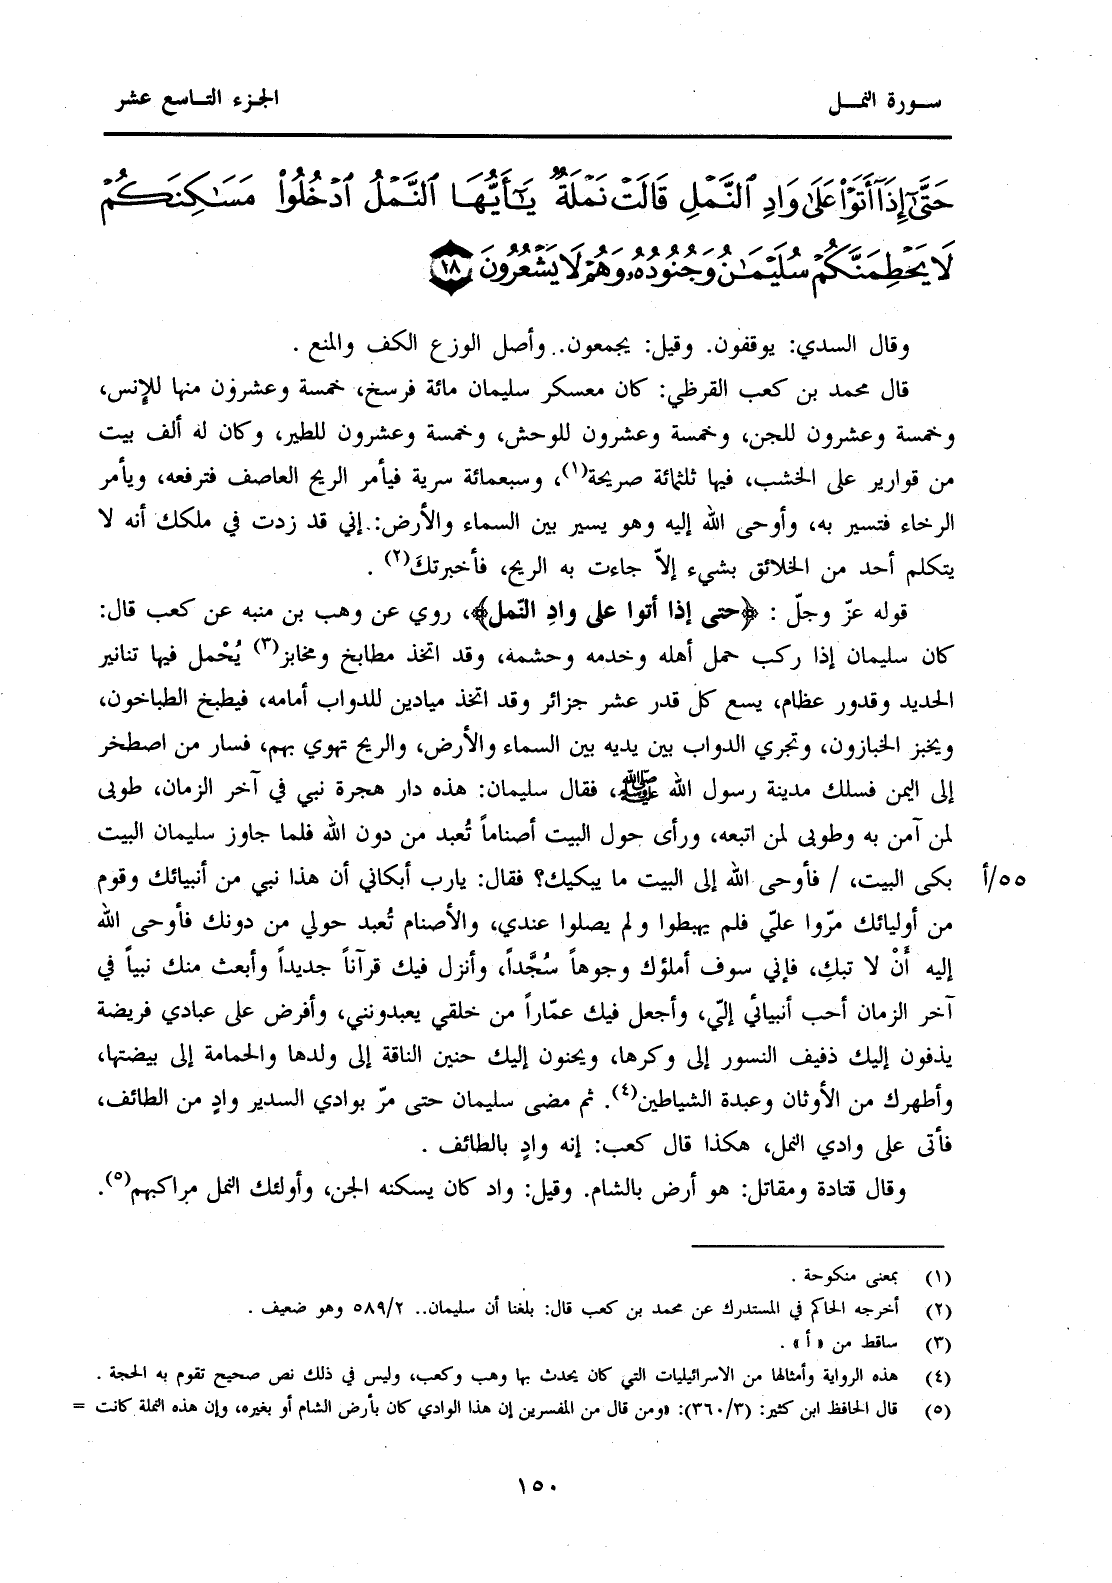 سورة النمل
الجزء التاسع عشر
حَتَّىٰٓ إِذَآ أَتَوْا۟ عَلَىٰ وَادِ ٱلنَّمْلِ قَالَتْ نَمْلَةٌ يَـٰٓأَيُّهَا ٱلنَّمْلُ ٱدْخُلُوا۟ مَسَـٰكِنَكُمْ
لَا يَحْطِمَنَّكُمْ سُلَيْمَـٰنُ وَجُنُودُهُۥ وَهُمْ لَا يَشْعُرُونَ ﴿١٨﴾
وقال السدي: يوقفون. وقيل: يجمعون.. وأصل الوزع الكف والمنع .
قال محمد بن كعب القرظي: كان معسكر سليمان مائة فرسخ، خمسة وعشرون منها للإنس،
وخمسة وعشرون للجن، وخمسة وعشرون للوحش، وخمسة وعشرون للطير، وكان له ألف بيت
من قوارير على الخشب، فيها ثلثمائة صريحة(١)، وسبعمائة سرية فيأمر الريح العاصف فترفعه، ويأمر
الرخاء فتسير به، وأوحى الله إليه وهو يسير بين السماء والأرض: إني قد زدت في ملكك أنه لا
يتكلم أحد من الخلائق بشيء إلاّ جاءت به الريح، فأخبرتكَ(٢) .
قوله عزّ وجلّ : ﴿حتى إذا أتوا على وادِ النّمل﴾، روي عن وهب بن منبه عن كعب قال:
كان سليمان إذا ركب حمل أهله وخدمه وحشمه، وقد اتخذ مطابخ ومخابز(٣) يُحْمل فيها تنانير
الحديد وقدور عظام، يسع كل قدر عشر جزائر وقد اتخذ ميادين للدواب أمامه، فيطبخ الطباخون،
ويخبز الخبازون، وتجري الدواب بين يديه بين السماء والأرض، والريح تهوي بهم، فسار من اصطخر
إلى اليمن فسلك مدينة رسول الله ﷺ، فقال سليمان: هذه دار هجرة نبي في آخر الزمان، طوبى
لمن آمن به وطوبى لمن اتبعه، ورأى حول البيت أصناماً تُعبد من دون الله فلما جاوز سليمان البيت
بكى البيت، / فأوحى الله إلى البيت ما يبكيك؟ فقال: يارب أبكاني أن هذا نبي من أنبيائك وقوم
٥٥/أ
من أوليائك مرّوا عليّ فلم يهبطوا ولم يصلوا عندي، والأصنام تُعبد حولي من دونك فأوحى الله
إليه أَنْ لا تبكِ، فإني سوف أملؤك وجوهاً سُجَّداً، وأنزل فيك قرآناً جديداً وأبعث منك نبياً في
آخر الزمان أحب أنبيائي إليّ، وأجعل فيك عمّاراً من خلقي يعبدونني، وأفرض على عبادي فريضة
يذفون إليك ذفيف النسور إلى وكرها، ويحنون إليك حنين الناقة إلى ولدها والحمامة إلى بيضتها،
وأطهرك من الأوثان وعبدة الشياطين(٤). ثم مضى سليمان حتى مرّ بوادي السدير وادٍ من الطائف،
فأتى على وادي النمل، هكذا قال كعب: إنه وادٍ بالطائف .
وقال قتادة ومقاتل: هو أرض بالشام. وقيل: واد كان يسكنه الجن، وأولئك النمل مراكبهم(٥).
(١) بمعنى منكوحة .
(٢) أخرجه الحاكم في المستدرك عن محمد بن كعب قال: بلغنا أن سليمان.. ٥٨٩/٢ وهو ضعيف .
(٣) ساقط من «أ» .
(٤) هذه الرواية وأمثالها من الاسرائيليات التي كان يحدث بها وهب وكعب، وليس في ذلك نص صحيح تقوم به الحجة .
(٥) قال الحافظ ابن كثير: (٣٦٠/٣): «ومن قال من المفسرين إن هذا الوادي كان بأرض الشام أو بغيره، وإن هذه النملة كانت =
١٥٠